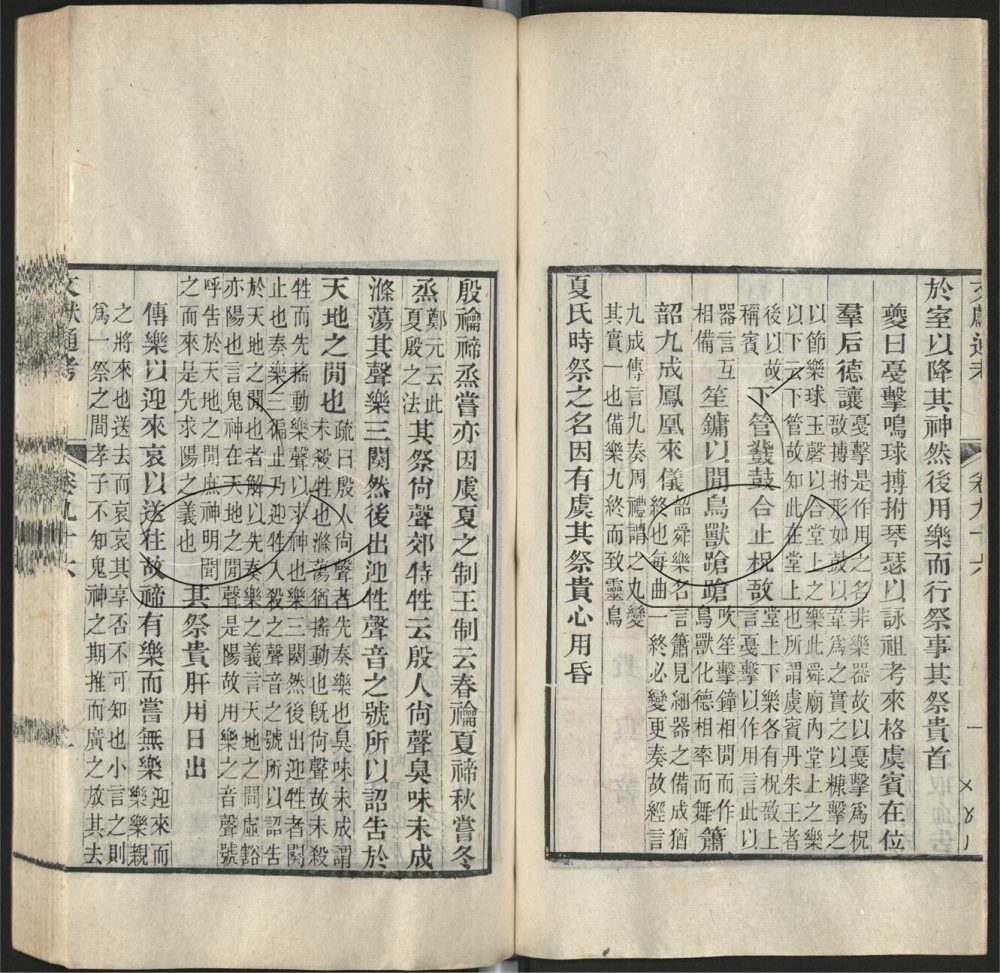 文獻通考 卷九十六 一
於室以降其神然後用樂而行祭事其祭貴首
夔曰戛擊鳴球搏拊琴瑟以詠祖考來格虞賓在位
羣后德讓
戛擊是作用之名非樂器故以戛擊爲柷
敔搏拊形如鼓以韋爲之實之以糠擊之
以節樂球玉磬以合堂上之樂此舜廟內堂上之樂
以下云下管故知此在堂上也所謂虞賓丹朱王者
後以故
稱賓
下管鼗鼓合止柷敔
堂上下樂各有柷敔上
言戛擊以作用言此以
器言互
相備
笙鏞以閒鳥獸蹌蹌
吹笙擊鐘相閒而作
鳥獸化德相率而舞
簫
韶九成鳳凰來儀
韶舜樂名言簫見細器之備成猶
終也每曲一終必變更奏故經言
九成傳言九奏周禮謂之九變
其實一也備樂九終而致靈鳥
夏氏時祭之名因有虞其祭貴心用昏
殷禴禘烝嘗亦因虞夏之制王制云春禴夏禘秋嘗冬
烝
鄭元云此
夏殷之法
其祭尙聲郊特牲云殷人尙聲臭味未成
滌蕩其聲樂三闋然後出迎牲聲音之號所以詔告於
天地之閒也
疏曰殷人尙聲者先奏樂也臭味未成謂
未殺牲也滌蕩猶搖動也旣尙聲故未殺
牲而先搖動樂聲以求神也樂三闋然後出迎牲者闋
止也奏樂三徧止乃迎牲入殺之聲音之號所以詔告
於天地之閒也者解以先奏樂之義言天地之閒虛豁
亦陽也言鬼神在天地之閒聲是陽故用樂之音聲號
呼告於天地之閒庶神明聞
之而來是先求陽之義也
其祭貴肝用日出
傳樂以迎來哀以送往故禘有樂而嘗無樂
迎來而
樂樂親
之將來也送去而哀哀其享否不可知也小言之則
爲一祭之閒孝子不知鬼神之期推而廣之放其去
文獻通考 卷九十六 二